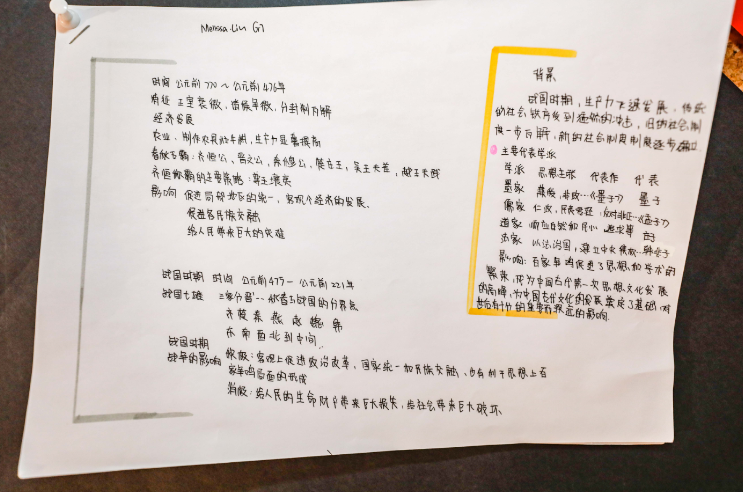 Melissa Liu G7
时间 公元前770～公元前476年
特征 王室衰微，诸侯争微，分封制瓦解
经济发展
农业、制作农具的牛耕，生产力显著提高
春秋五霸：齐桓公、晋文公、楚庄王、吴王夫差、越王夫战
齐桓称霸的主要策略：尊王攘夷
影响 促进局部地区的统一，客观个经济的发展、
促进各民族交融
给人民带来巨大的灾难
战国时期 时间 公元前475～公元前221年
战国七雄 三家分晋--战国的分界点
齐 楚 秦 燕 赵 魏 韩
东 南 西 北 到中间
战国时期
战争的影响 积极：客观上促进政治改革，国家统一和民族交融、也有利于思想上百
家争鸣局面的形成
消极：给人民的生命财产带来巨大损失，给社会带来巨大破坏、
背景
战国时期，生产力发展，传统
的社会秩序受到的冲击，旧的社会制
度一步瓦解，新的社会制度逐步确立
主要代表学派
学派 思想主张 代表作 代表
墨家 兼爱，非攻…《墨子》 墨子
儒家 仁政，民贵君轻 《孟子》
道家 顺应自然和民心
法家 以法治国，建立中央集权…韩非子
影响：百家争鸣促进了思想和学术的
繁荣，成为中国古代第一次思想文化发展
的高峰，为中国古代文化的发展奠定了基础，对
深远的影响